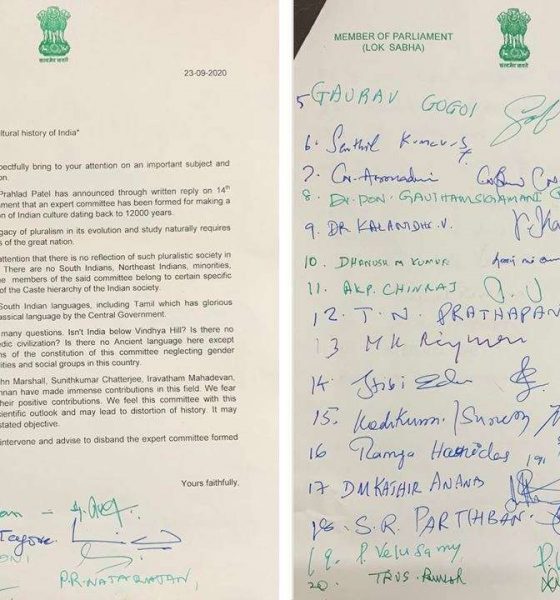 सत्यमेव जयते
23-09-2020
ltural history of India"
pectfully bring to your attention on an important subject and
on.
Prahlad Patel has announced through written reply on 14th
ment that an expert committee has been formed for making a
on of Indian culture dating back to 12000 years.
gacy of pluralism in its evolution and study naturally requires
s of the great nation.
attention that there is no reflection of such pluralistic society in
There are no South Indians, Northeast Indians, minorities,
e members of the said committee belong to certain specific
of the Caste hierarchy of the Indian society.
South Indian languages, including Tamil which has glorious
assical language by the Central Government.
many questions. Isn't India below Vindhya Hill? Is there no
edic civilization? Is there no Ancient language here except
ns of the constitution of this committee neglecting gender
ities and social groups in this country.
hn Marshall, Sunithkumar Chatterjee, Iravatham Mahadevan,
nnan have made immense contributions in this field. We fear
their positive contributions. We feel this committee with this
cientific outlook and may lead to distortion of history. It may
stated objective.
intervene and advise to disband the expert committee formed
Yours faithfully.
Tagore
P.R. NATARAJAN,
MEMBER OF PARLIAMENT
(LOK SABHA)
सत्यमेव जयते
5 GAURAV GOGOI
6. Senthil Kumar. S
7.
8. Dr. DON. GAUTHAMSIGAMANI
9. DR KALANIDHI. V.
10. DHANUSH M KUMAR
11. AKP. CHINRAJ
12. T. N. PRATHAPAN
13 M K
14.
15. Kodikunnil Suresh
16 Ramya Haridas
17 DM KATHIR ANAND
18. S.R. PARTHIBAN.
19. P. Velusamy
20. TRVS.